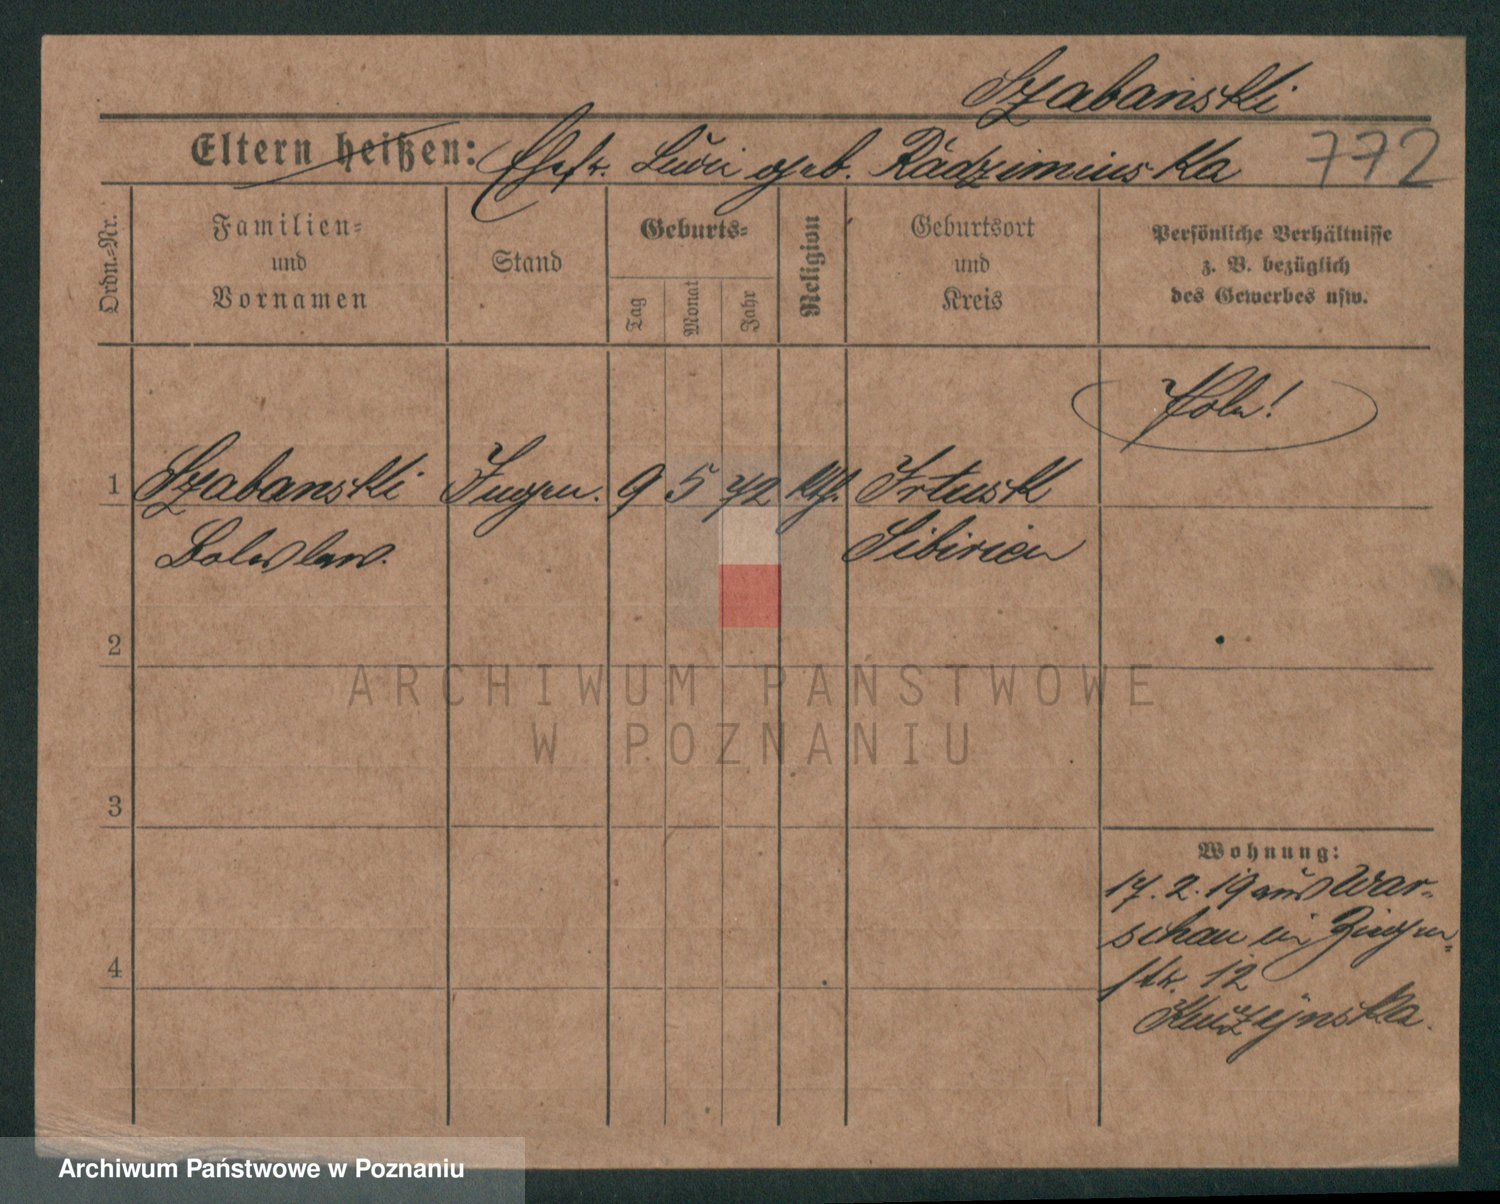 Szabański
Eltern heißen: Ehefr. geb. Radzimińska 772
Ordn.-Nr.
Familien-
und
Vornamen
Stand
Geburts-
Tag
Monat
Jahr
Religion
Geburtsort
und
Kreis
Persönliche Verhältnisse
z. B. bezüglich
des Gewerbes usw.
Pole!
1 Szabanski Ingen. 9 5 72 kth. Irkusk
Boleslaw. Sibirien
2
ARCHIWUM PAŃSTWOWE
W POZNANIU
3
Wohnung:
17. 2. 19 aus War-
schau in
4
str. 12
Archiwum Państwowe w Poznaniu